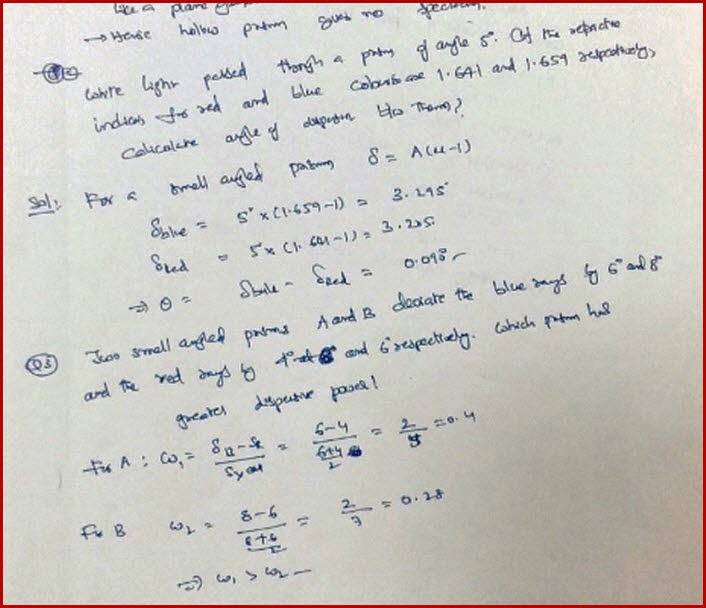 like a plane
→ Hence hollow prism gives no spectrum.
White light passed through a prism of angle 5°. If the refractive
indices for red and blue colours are 1.641 and 1.659 respectively,
Calculate angle of dispersion b/w them?
Sol: For a small angled prism δ = A(μ-1)
δblue = 5° x (1.659-1) = 3.295°
δRed = 5° x (1.641-1) = 3.205
⇒ θ = δblue - δred = 0.09°
Q3 Two small angled prisms A and B deviate the blue rays by 6° and 8°
and the red rays by 4° and 6° respectively. Which prism has
greater dispersive power?
For A : ω₁ = δB-δR / δyell = 6-4 / 6+4/2 = 2/5 = 0.4
For B ω₂ = 8-6 / 8+6/2 = 2/7 = 0.28
⇒ ω₁ > ω₂